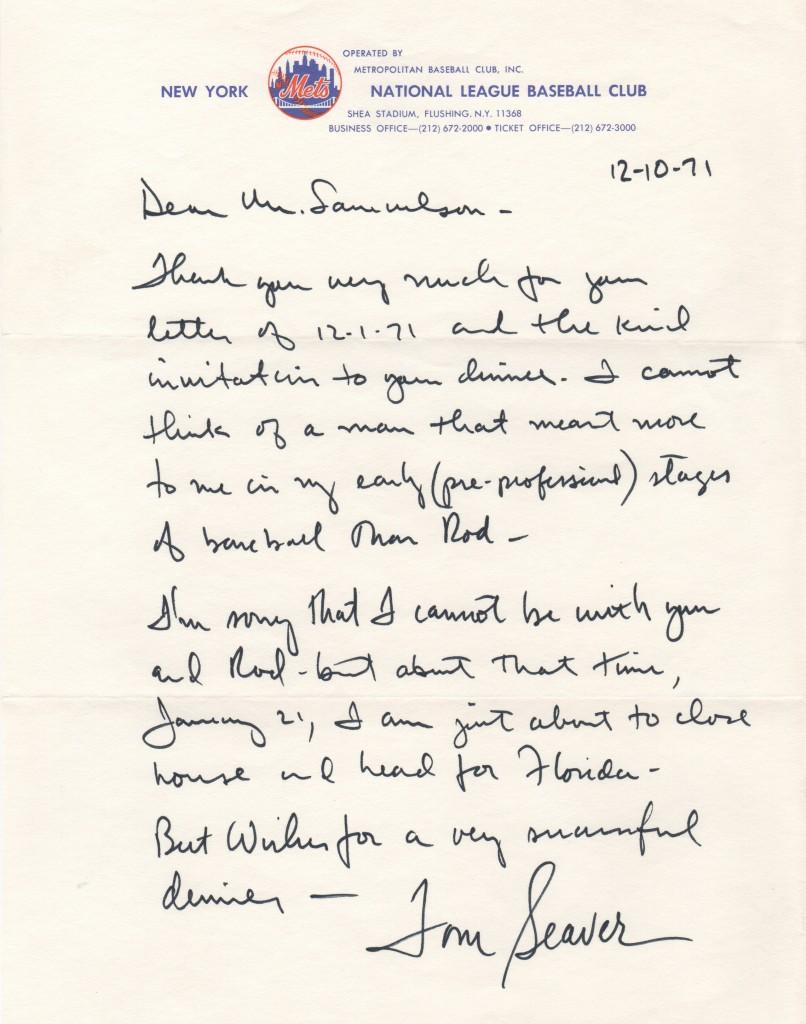 OPERATED BY
METROPOLITAN BASEBALL CLUB, INC.
NEW YORK Mets NATIONAL LEAGUE BASEBALL CLUB
SHEA STADIUM, FLUSHING, N.Y. 11368
BUSINESS OFFICE—(212) 672-2000 • TICKET OFFICE—(212) 672-3000
12-10-71
Dear Mr. Samuelson -
Thank you very much for your
letter of 12-1-71 and the kind
invitation to your dinner. I cannot
think of a man that meant more
to me in my early (pre-professional) stages
of baseball than Rod -
I'm sorry that I cannot be with you
and Rod - but about that time,
January 21, I am just about to close
house and head for Florida -
Best Wishes for a very successful
dinner — Tom Seaver